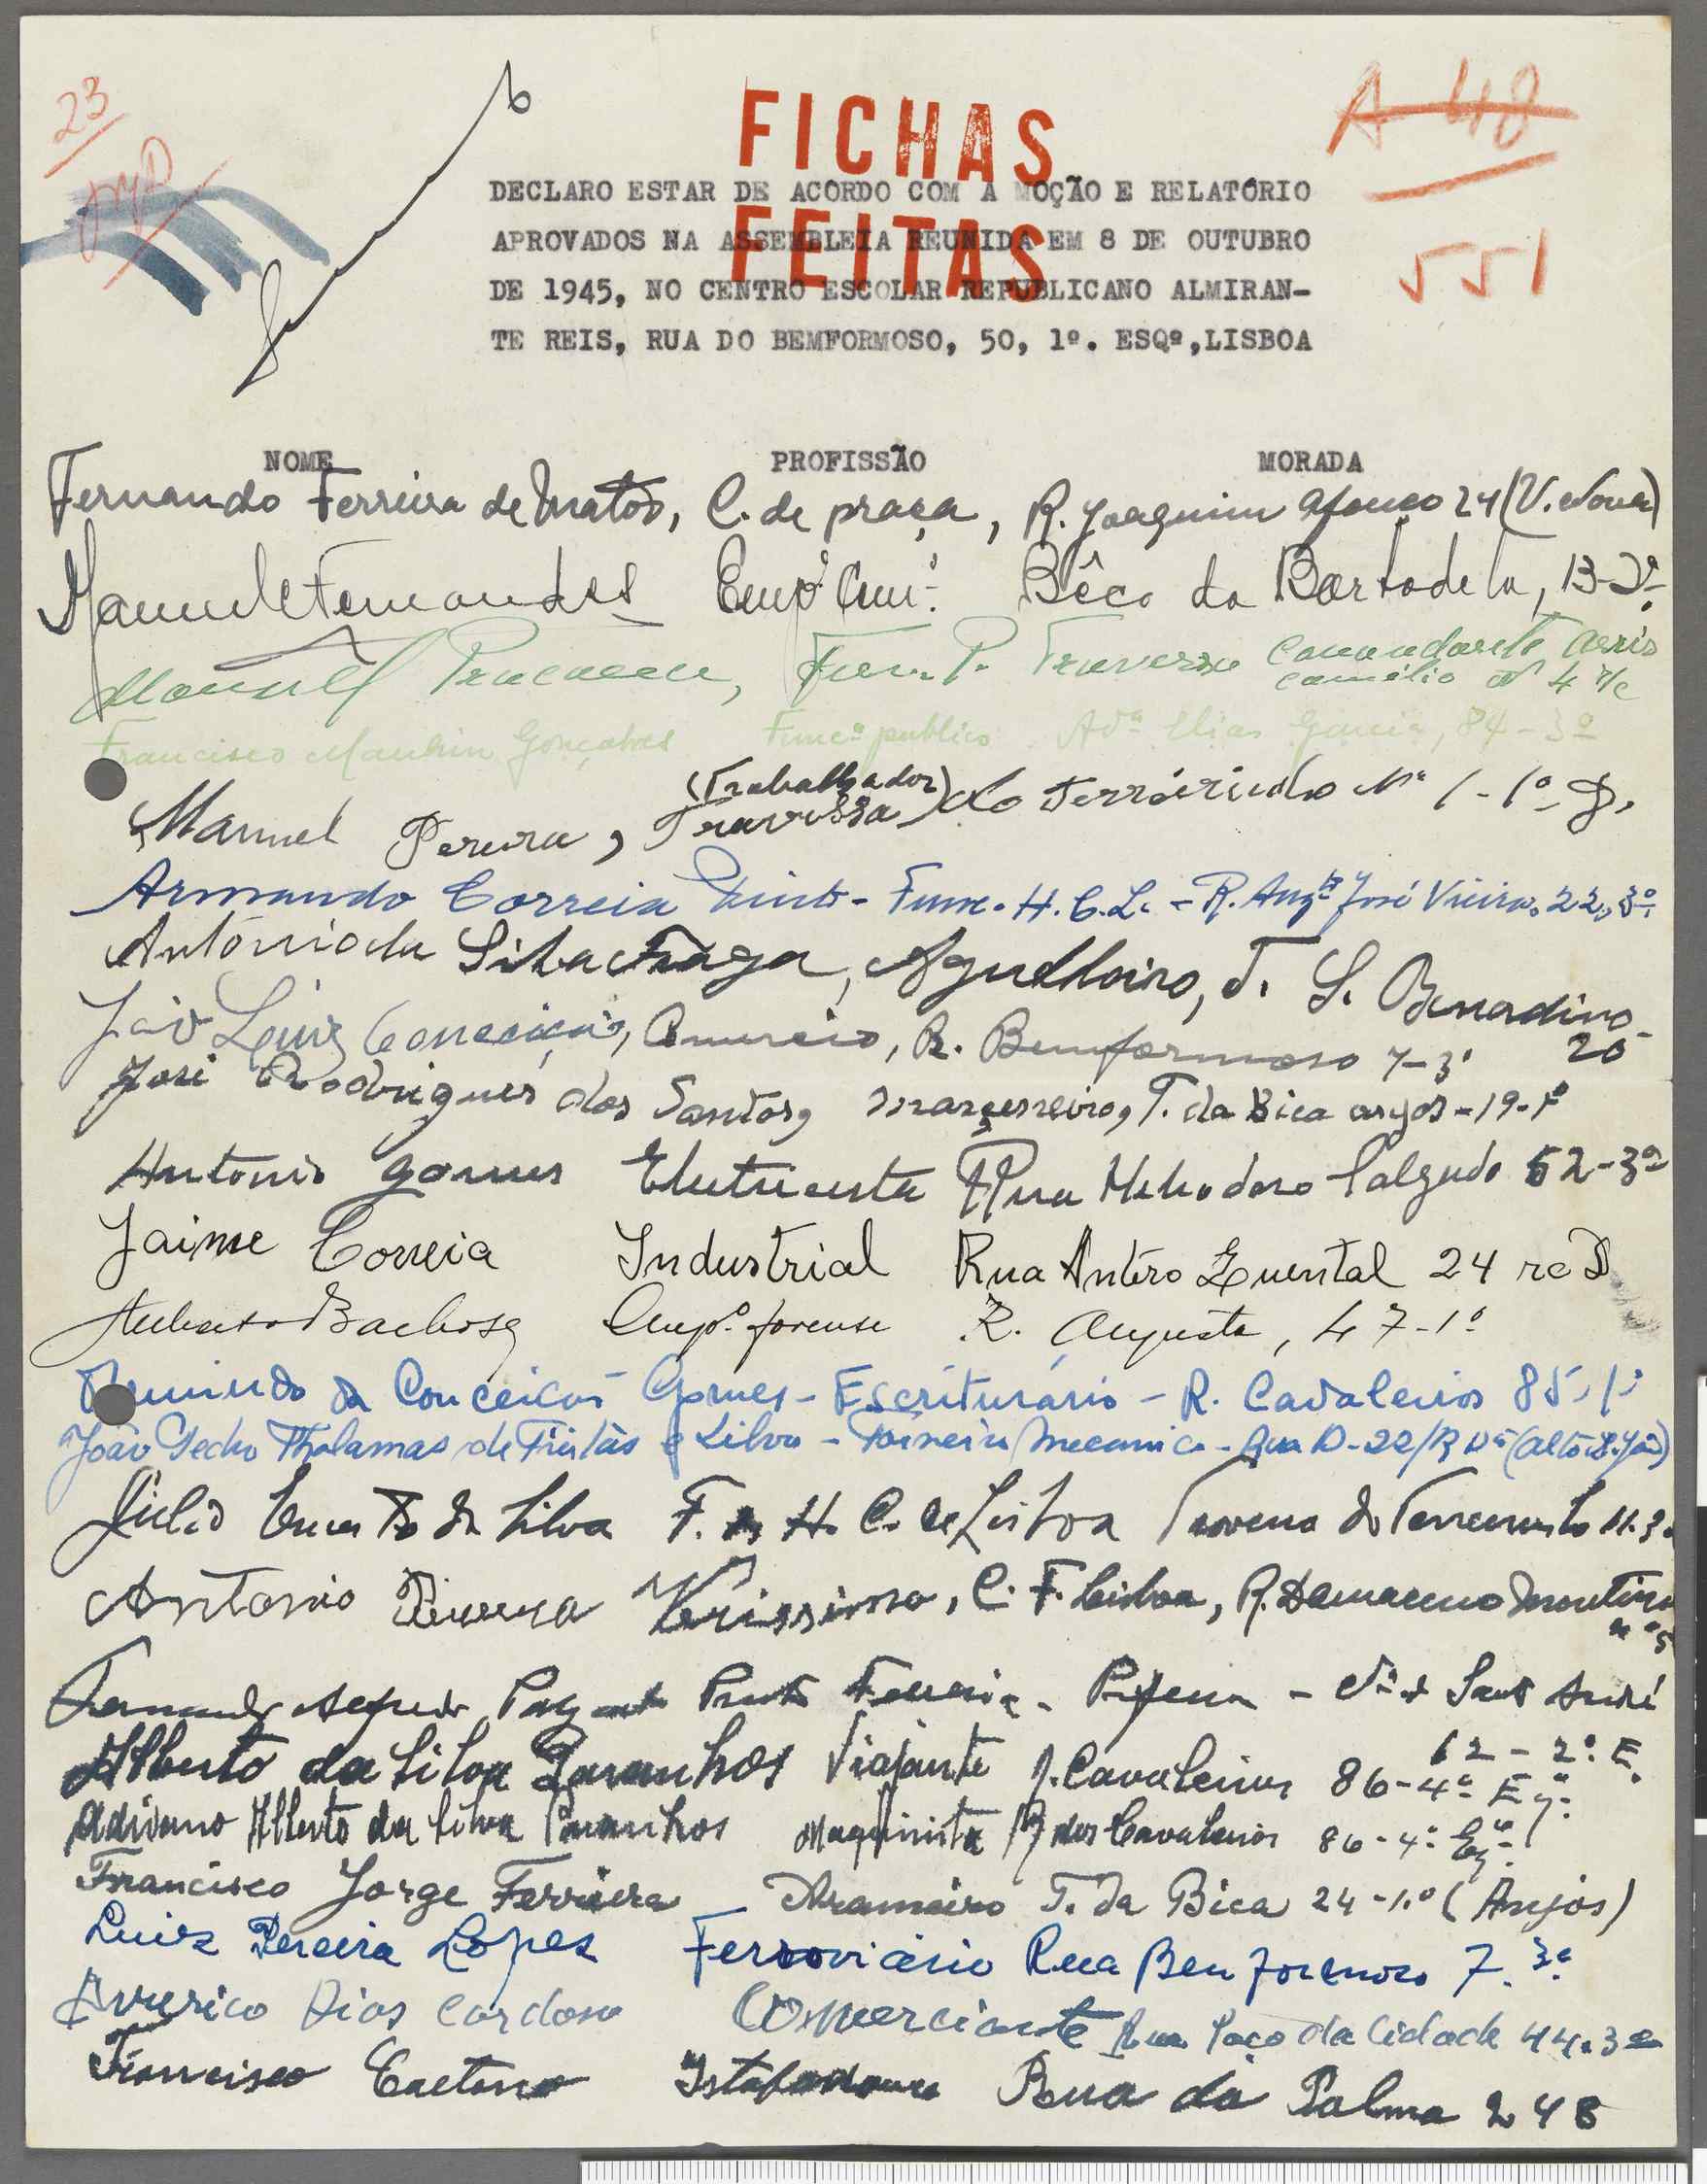 23
A 48
551
FICHAS
FEITAS
DECLARO ESTAR DE ACORDO COM A MOÇÃO E RELATÓRIO
APROVADOS NA ASSEMBLEIA REUNIDA EM 8 DE OUTUBRO
DE 1945, NO CENTRO ESCOLAR REPUBLICANO ALMIRAN-
TE REIS, RUA DO BEMFORMOSO, 50, 1º. ESQº, LISBOA
NOME PROFISSÃO MORADA
Fernando Ferreira de Matos, C. de praça, R. Joaquim Afonso 24 (V. Nova)
Manuel Fernandes Empº Com. Bêco da 13-2º
Manuel Fun. P. Travessa Comandante
camilio Nº 4 r/c
Francisco Gonçalves Funcº publico Avª Elias Garcia, 84-3º
(Trabalhador)
Manuel Pereira, Travessa do Terreirinho Nº 1-1º D.
Armando Correia Pinto - Func. H. C. L. - R. Augto José Vieira, 22, 3º
António da Silva Fraga, Agulheiro, T. S. Bernardino
20
João Luiz Conceição, Comercio, R. Bemformoso 7-3º
José Rodrigues dos Santos, marceneiro, T. da Bica anjos - 19-1º
Antonio Gomes Eletricista Rua Heliodoro Salgado 52-3º
Jaime Correia Industrial Rua Antero Quental 24 rc D
Barbosa Empº forense R. Augusta, 47-1º
da Conceição Gomes - Escriturário - R. Cavaleiros 85, 1º
João Pedro Thalamas de Freitas e Silva - Torneiro Mecanico - Rua D-22/R Dº (alto S. João)
Júlio da Silva F. H. C. de Lisboa Travessa do Terreirinho 11.3º
Antonio Pereira Verissimo, C. F. Lisboa, R. Damasceno Monteiro
nº 5
Fernando Alfredo Pinto Ferreira - - Santo André
62 - 2º E.
Alberto da Silva Paranhos Viajante R. Cavaleiros 86-4º Eqº
Adriano Alberto da Silva Paranhos Maquinista R. dos Cavaleiros 86-4º Eqº
Francisco Jorge Ferreira Arameiro T. da Bica 24-1.º (Anjos)
Luiz Pereira Lopes Ferroviário Rua Benformoso 7. 3º
Americo Dias Cardoso Comerciante Rua Poço da Cidade 44.3º
Francisco Caetano Rua da Palma 248